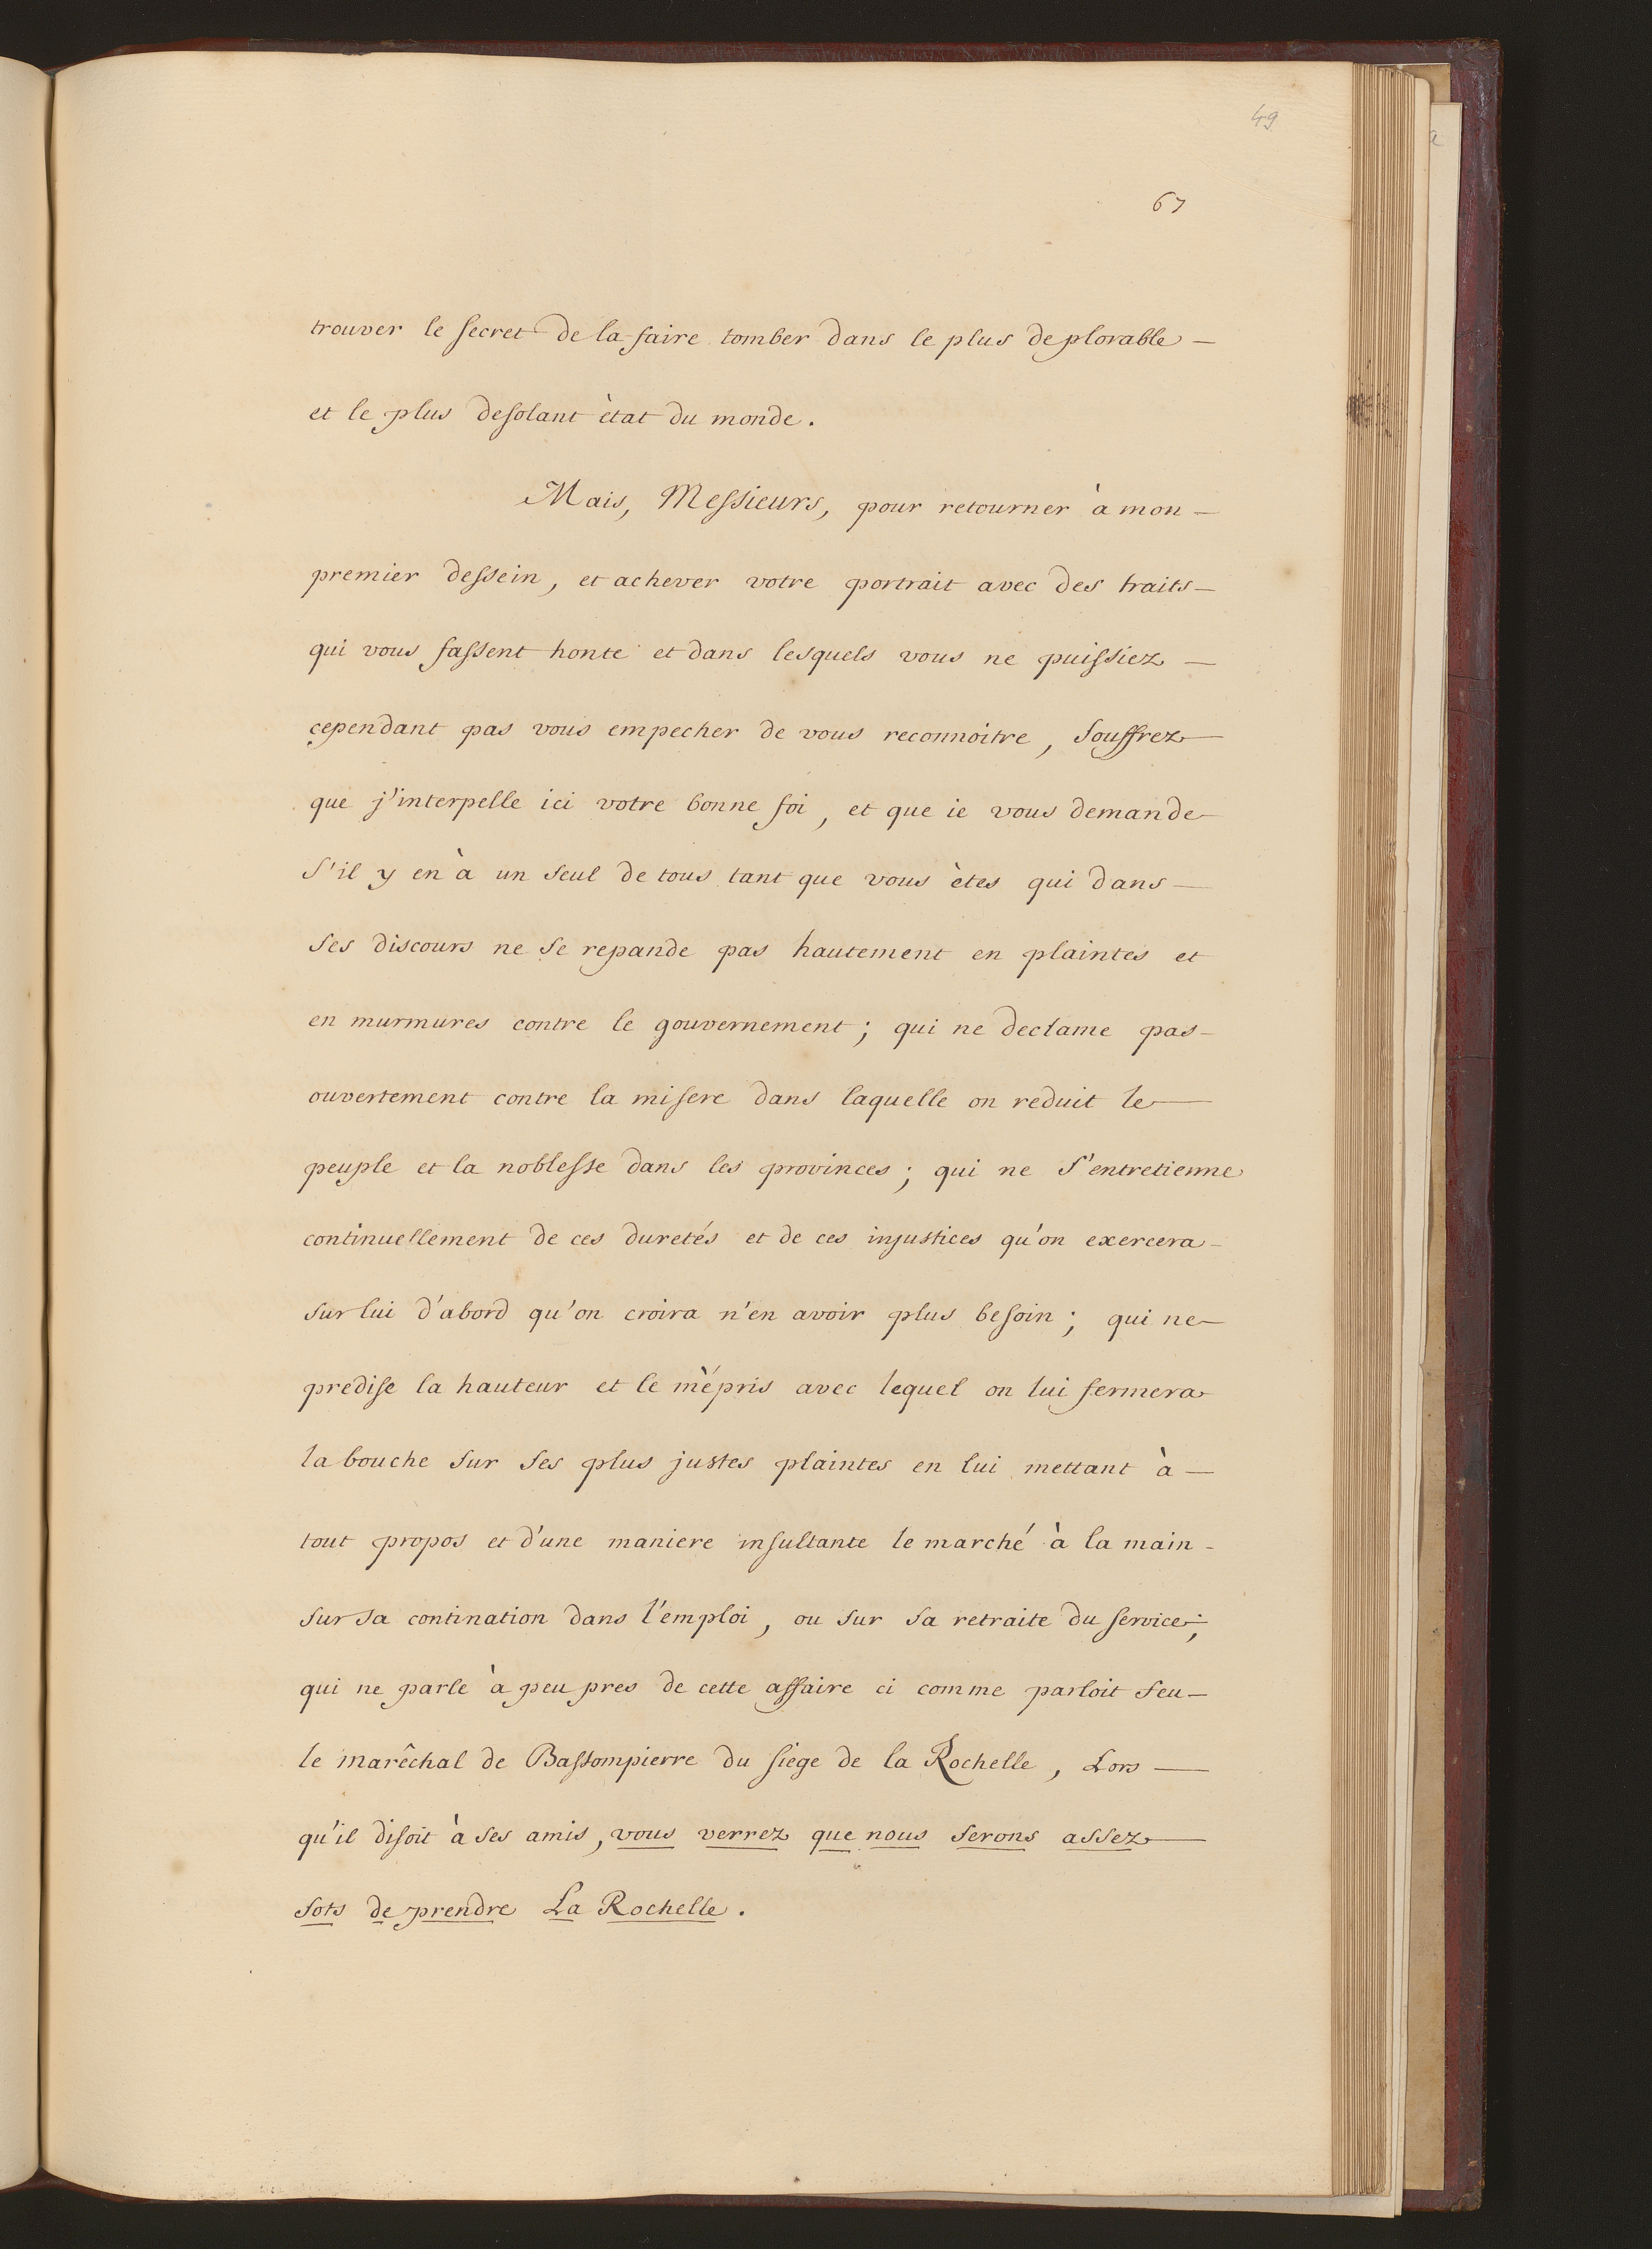 49
67
trouver le secret de la faire tomber dans le plus deplorable —
et le plus desolant ètat du monde.
Mais, Messieurs, pour retourner à mon —
premier dessein, et achever votre portrait avec des traits —
qui vous fassent honte et dans lesquels vous ne puissiez —
cependant pas vous empecher de vous reconnoitre, souffrez —
que j'interpelle ici votre bonne foi, et que ie vous demande
s'il y en à un seul de tous tant que vous ètes qui dans —
ses discours ne se repande pas hautement en plaintes et
en murmures contre le gouvernement; qui ne declame pas —
ouvertement contre la misere dans laquelle on reduit le —
peuple et la noblesse dans les provinces; qui ne s'entretienne
continuellement de ces duretés et de ces injustices qu'on exercera —
sur lui d'abord qu'on croira n'en avoir plus besoin; qui ne —
predise la hauteur et le mépris avec lequel on lui fermera
la bouche sur ses plus justes plaintes en lui mettant à —
tout propos et d'une maniere insultante le marché à la main -
sur sa contination dans l'emploi, ou sur sa retraite du service;
qui ne parle à peu pres de cette affaire ci comme parloit feu —
le marêchal de Bassompierre du siege de la Rochelle, Lors —
qu'il disoit à ses amis, vous verrez que nous serons assez —
sots de prendre La Rochelle.